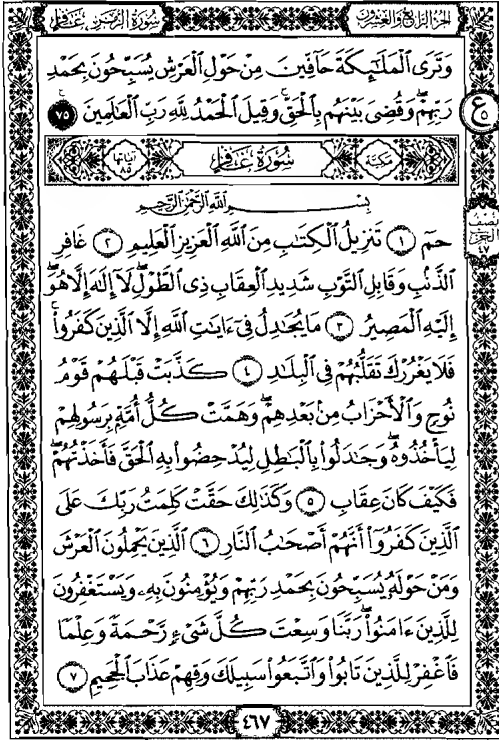 الجزء الرابع والعشرون
سورة الزمر، غافر
وَتَرَى ٱلْمَلَٰٓئِكَةَ حَآفِّينَ مِنْ حَوْلِ ٱلْعَرْشِ يُسَبِّحُونَ بِحَمْدِ
رَبِّهِمْ ۖ وَقُضِىَ بَيْنَهُم بِٱلْحَقِّ وَقِيلَ ٱلْحَمْدُ لِلَّهِ رَبِّ ٱلْعَٰلَمِينَ ٧٥
ع ٥
مكية
سُورَةُ غَافِر
آياتها ٨٥
بِسْمِ ٱللَّهِ ٱلرَّحْمَٰنِ ٱلرَّحِيمِ
حمٓ ١ تَنزِيلُ ٱلْكِتَٰبِ مِنَ ٱللَّهِ ٱلْعَزِيزِ ٱلْعَلِيمِ ٢ غَافِرِ
ٱلذَّنۢبِ وَقَابِلِ ٱلتَّوْبِ شَدِيدِ ٱلْعِقَابِ ذِى ٱلطَّوْلِ ۖ لَآ إِلَٰهَ إِلَّا هُوَ ۖ
إِلَيْهِ ٱلْمَصِيرُ ٣ مَا يُجَٰدِلُ فِىٓ ءَايَٰتِ ٱللَّهِ إِلَّا ٱلَّذِينَ كَفَرُوا۟
فَلَا يَغْرُرْكَ تَقَلُّبُهُمْ فِى ٱلْبِلَٰدِ ٤ كَذَّبَتْ قَبْلَهُمْ قَوْمُ
نُوحٍ وَٱلْأَحْزَابُ مِنۢ بَعْدِهِمْ ۖ وَهَمَّتْ كُلُّ أُمَّةٍۭ بِرَسُولِهِمْ
لِيَأْخُذُوهُ ۖ وَجَٰدَلُوا۟ بِٱلْبَٰطِلِ لِيُدْحِضُوا۟ بِهِ ٱلْحَقَّ فَأَخَذْتُهُمْ ۖ
فَكَيْفَ كَانَ عِقَابِ ٥ وَكَذَٰلِكَ حَقَّتْ كَلِمَتُ رَبِّكَ عَلَى
ٱلَّذِينَ كَفَرُوٓا۟ أَنَّهُمْ أَصْحَٰبُ ٱلنَّارِ ٦ ٱلَّذِينَ يَحْمِلُونَ ٱلْعَرْشَ
وَمَنْ حَوْلَهُۥ يُسَبِّحُونَ بِحَمْدِ رَبِّهِمْ وَيُؤْمِنُونَ بِهِۦ وَيَسْتَغْفِرُونَ
لِلَّذِينَ ءَامَنُوا۟ ۖ رَبَّنَا وَسِعْتَ كُلَّ شَىْءٍ رَّحْمَةً وَعِلْمًا
فَٱغْفِرْ لِلَّذِينَ تَابُوا۟ وَٱتَّبَعُوا۟ سَبِيلَكَ وَقِهِمْ عَذَابَ ٱلْجَحِيمِ ٧
٤٦٧